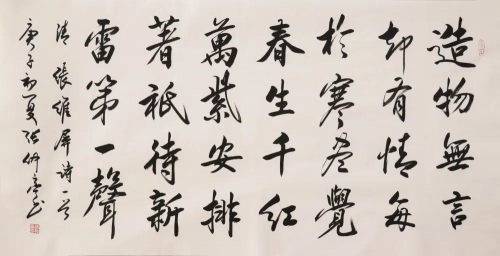 造物無言
却有情每
於寒盡覺
春生千紅
萬紫安排
著祇待新
雷第一聲
清張維屏詩一首
庚子初夏張仲亭書